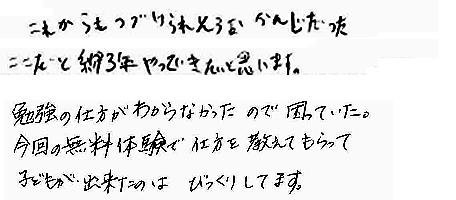 これからもつづけられそうな かんじだった
ここだと約3年やっていきたいと思います。
勉強の仕方がわからなかったので困っていた。
今回の無料体験で仕方を教えてもらって
子どもが出来たのは びっくりしてます。